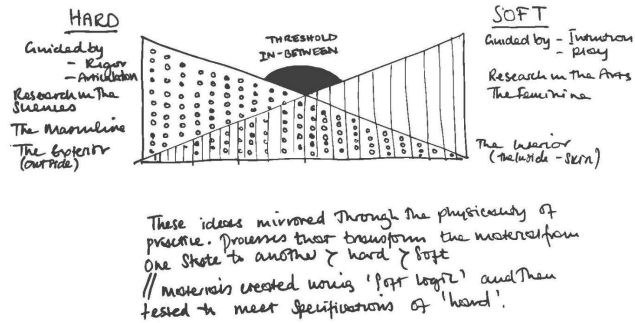 HARD
Guided by
- Rigor
- Articulation
Research in the
Sciences
The Masculine
The Exterior
(outside)
THRESHOLD
IN-BETWEEN
SOFT
Guided by - Intuition
- Play
Research in the Arts
The Feminine
The Interior
(the inside - skin)
These ideas mirrored through the physicality of
practice. Processes that transform the material from
one state to another > hard > soft
// materials created using 'soft logic' and then
tested to meet specifications of 'hard'.